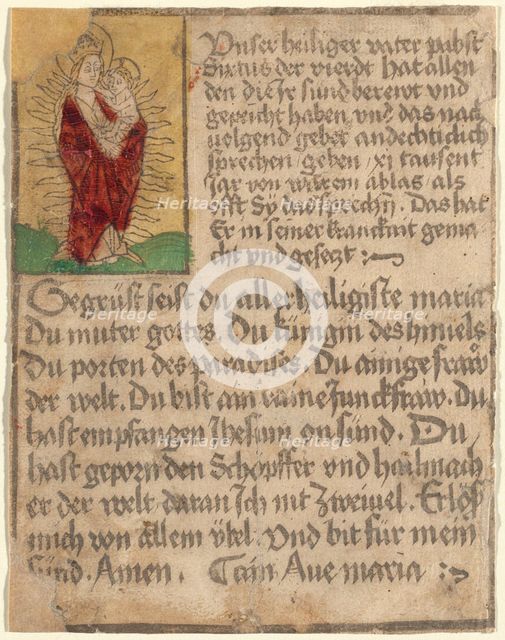 Unser heiliger vater pabst
Sixtus der vierdt hat allen
den die ir sund berewt und
gepeicht haben, und das nach
uolgend gebet andechticlich
sprechen, geben, xi tausent
Jar von warem ablas als
offt Sy das sprechn. Das hat
Er in seiner kranckait gema
cht und gesetzt :~
Gegrüst seist du allerheiligiste maria
Du muter gottes. Du künigin des himels
Du porten des paradises. Du ainige fraw
der welt. Du bist ain raine Junckfraw. Du
hast empfangen Jhesum on sünd. Du
hast geporn den Schöpffer und hailmach
er der welt daran Ich nit Zweiuel. Erlöß
mich von allem übel. Und bit für mein
Sünd. Amen. Ave maria :~
Heritage
Heritage
Heritage
Heritage
Heritage
Heritage
Heritage